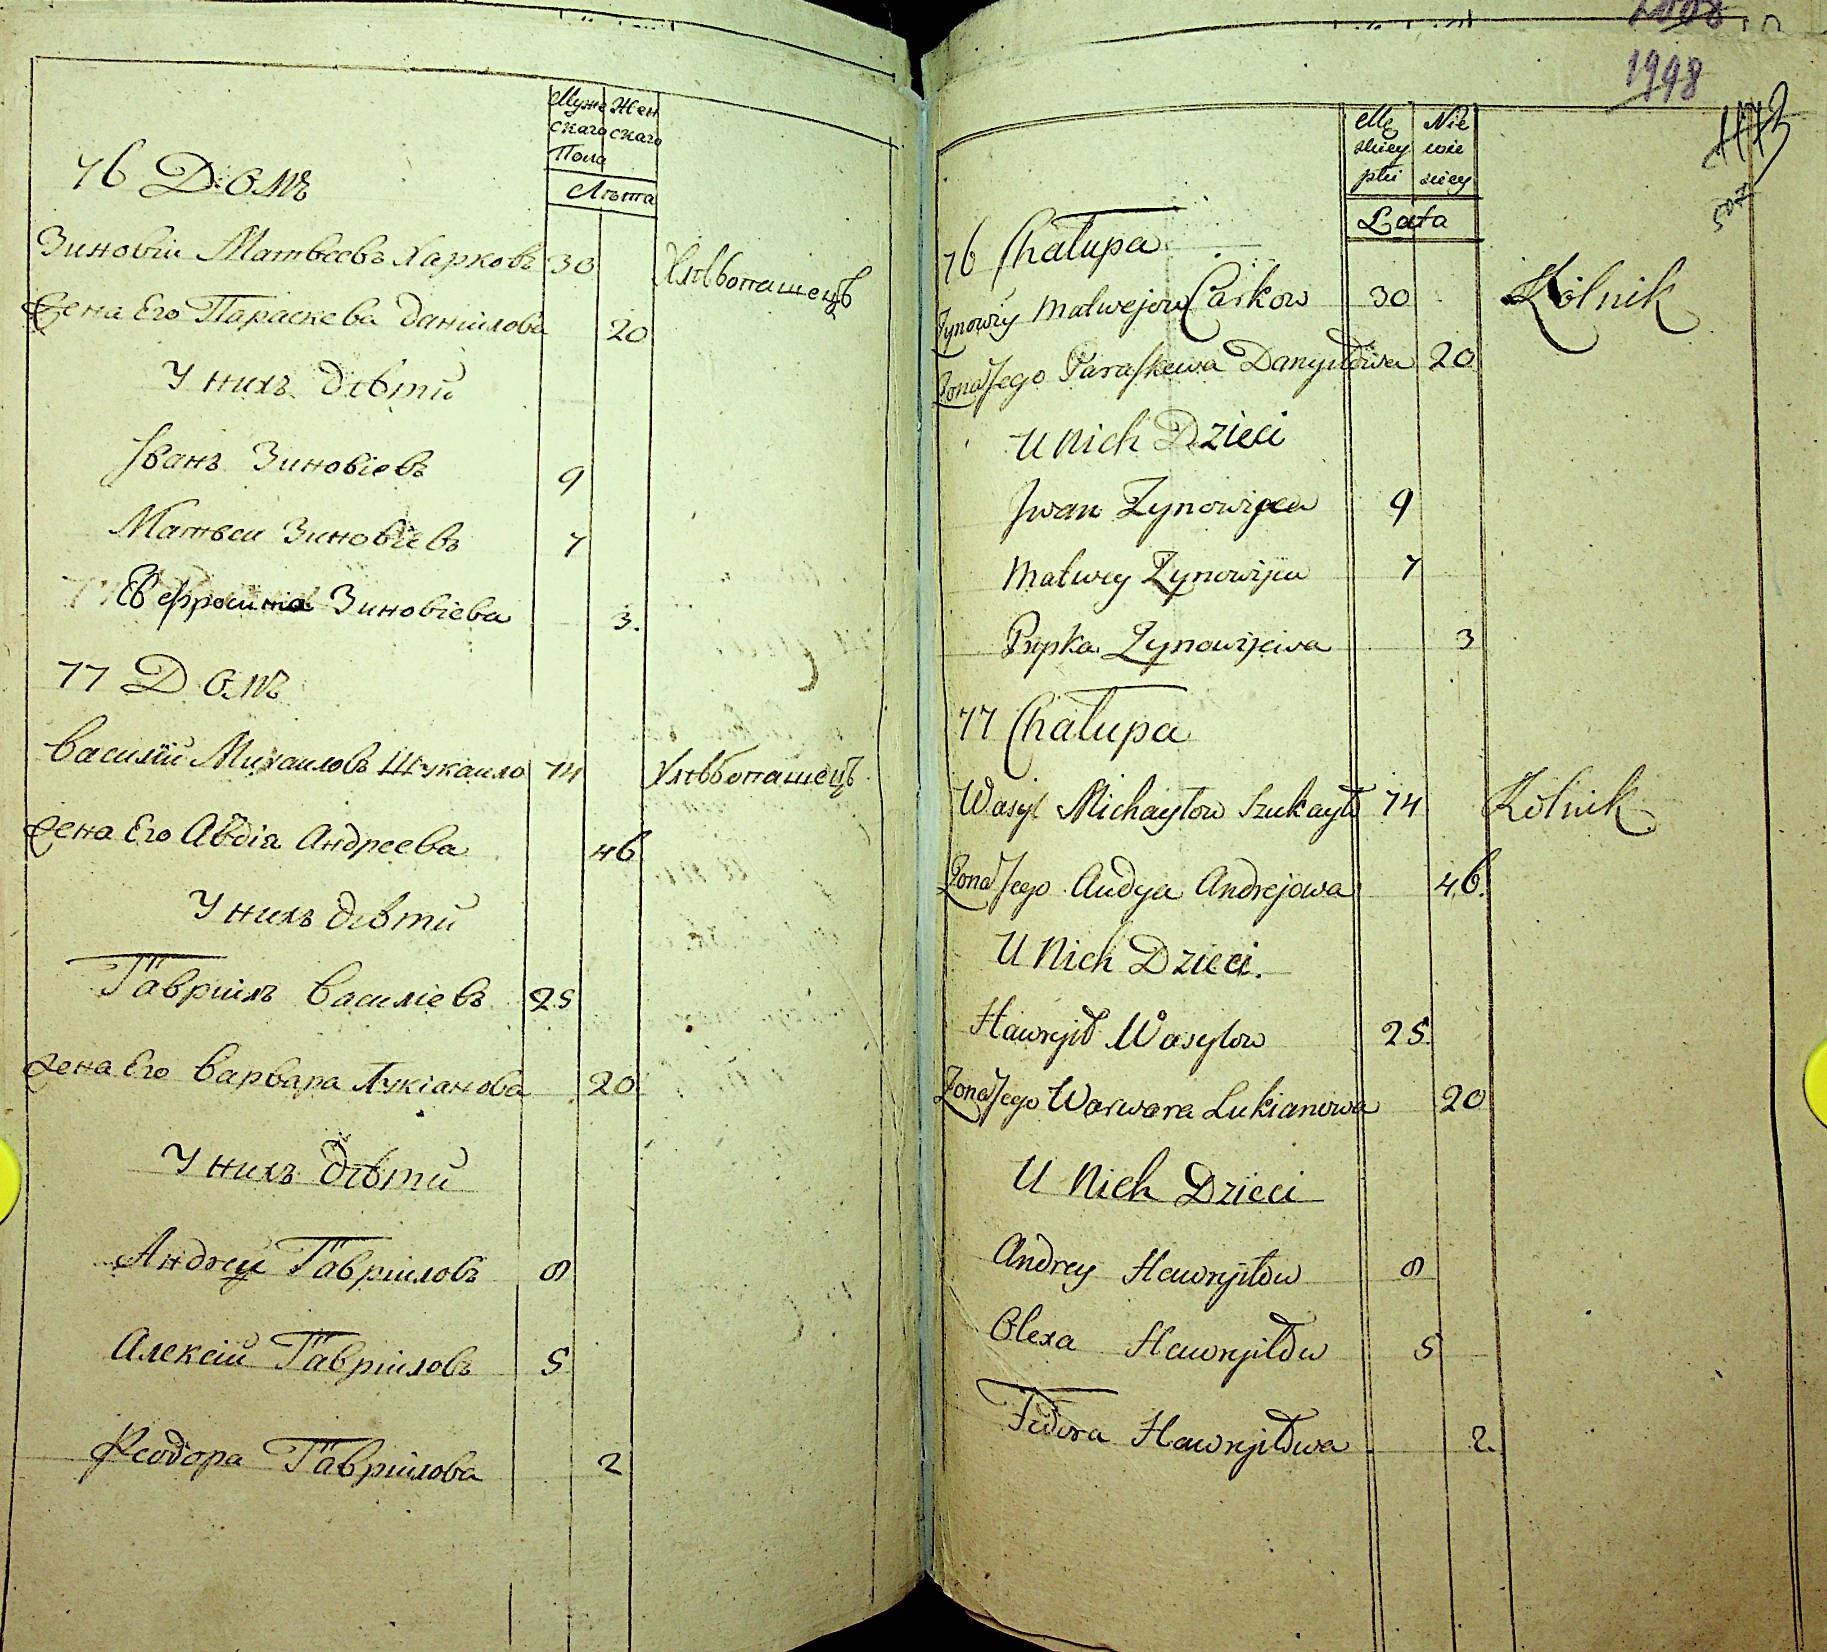 Муже Жен
скаго скаго
Пола
Лѣта
76 Домъ
Зиновіи Матвеевъ Харковъ 30 Хлѣбопашецъ
Жена Его Параскева даніилова 20
У нихъ дѣти
Іванъ Зиновіевъ 9
Матвеи Зиновіевъ 7
Ефросина Зиновіева 3.
77 Домъ
Василій Михаиловъ Шукаило 74 Хлѣбопашецъ
Жена Его Авдія Андреева 46
У нихъ дѣти
Гавріилъ Василіевъ 25
Жена Его Варвара Лукіанова 20
У нихъ дѣти
Андрей Гавріиловъ 8
Алексій Гавріиловъ 5
Ѳеодора Гавріилова 2
1998
Mę Nie
skiey wie
płci sciey
Lata
76 Chałupa
Zynowiy Matwejow Carkow 30 Rólnik
Żona Jego Paraskewa Danyiłowa 20
U Nich Dzieci
Jwan Zynowijew 9
Matwey Zynowijew 7
Prypka Zynowijewa 3
77 Chałupa
Wasyl Michayłow Szukayło 74 Rólnik
Żona Jego Audya Andrejowa 46.
U Nich Dzieci.
Hawryił Wasylow 25.
Żona Jego Warwara Lukianowa 20
U Nich Dzieci
Andrey Hawryiłow 8
Olexa Hawryiłow 5
Fedora Hawryiłowa 2.